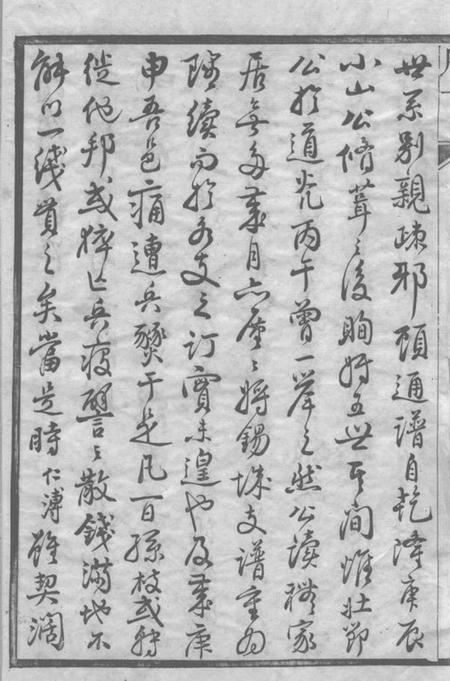 世系别親疎邪顧通譜自乾隆庚辰
小山公脩葺之後眴將五世其间惟壮節
公於道光丙午曾一举之然公讀禮家
居無多自六房之將錫城支譜重為
賡續而於各支之订實未遑也及庚
申吾邑痛遭兵燹于是凡百孫枝或轉
徙他邦或猝亡兵疫譬之散錢滿地不
解以一綫貫之矣當是時仁溥雖契濶